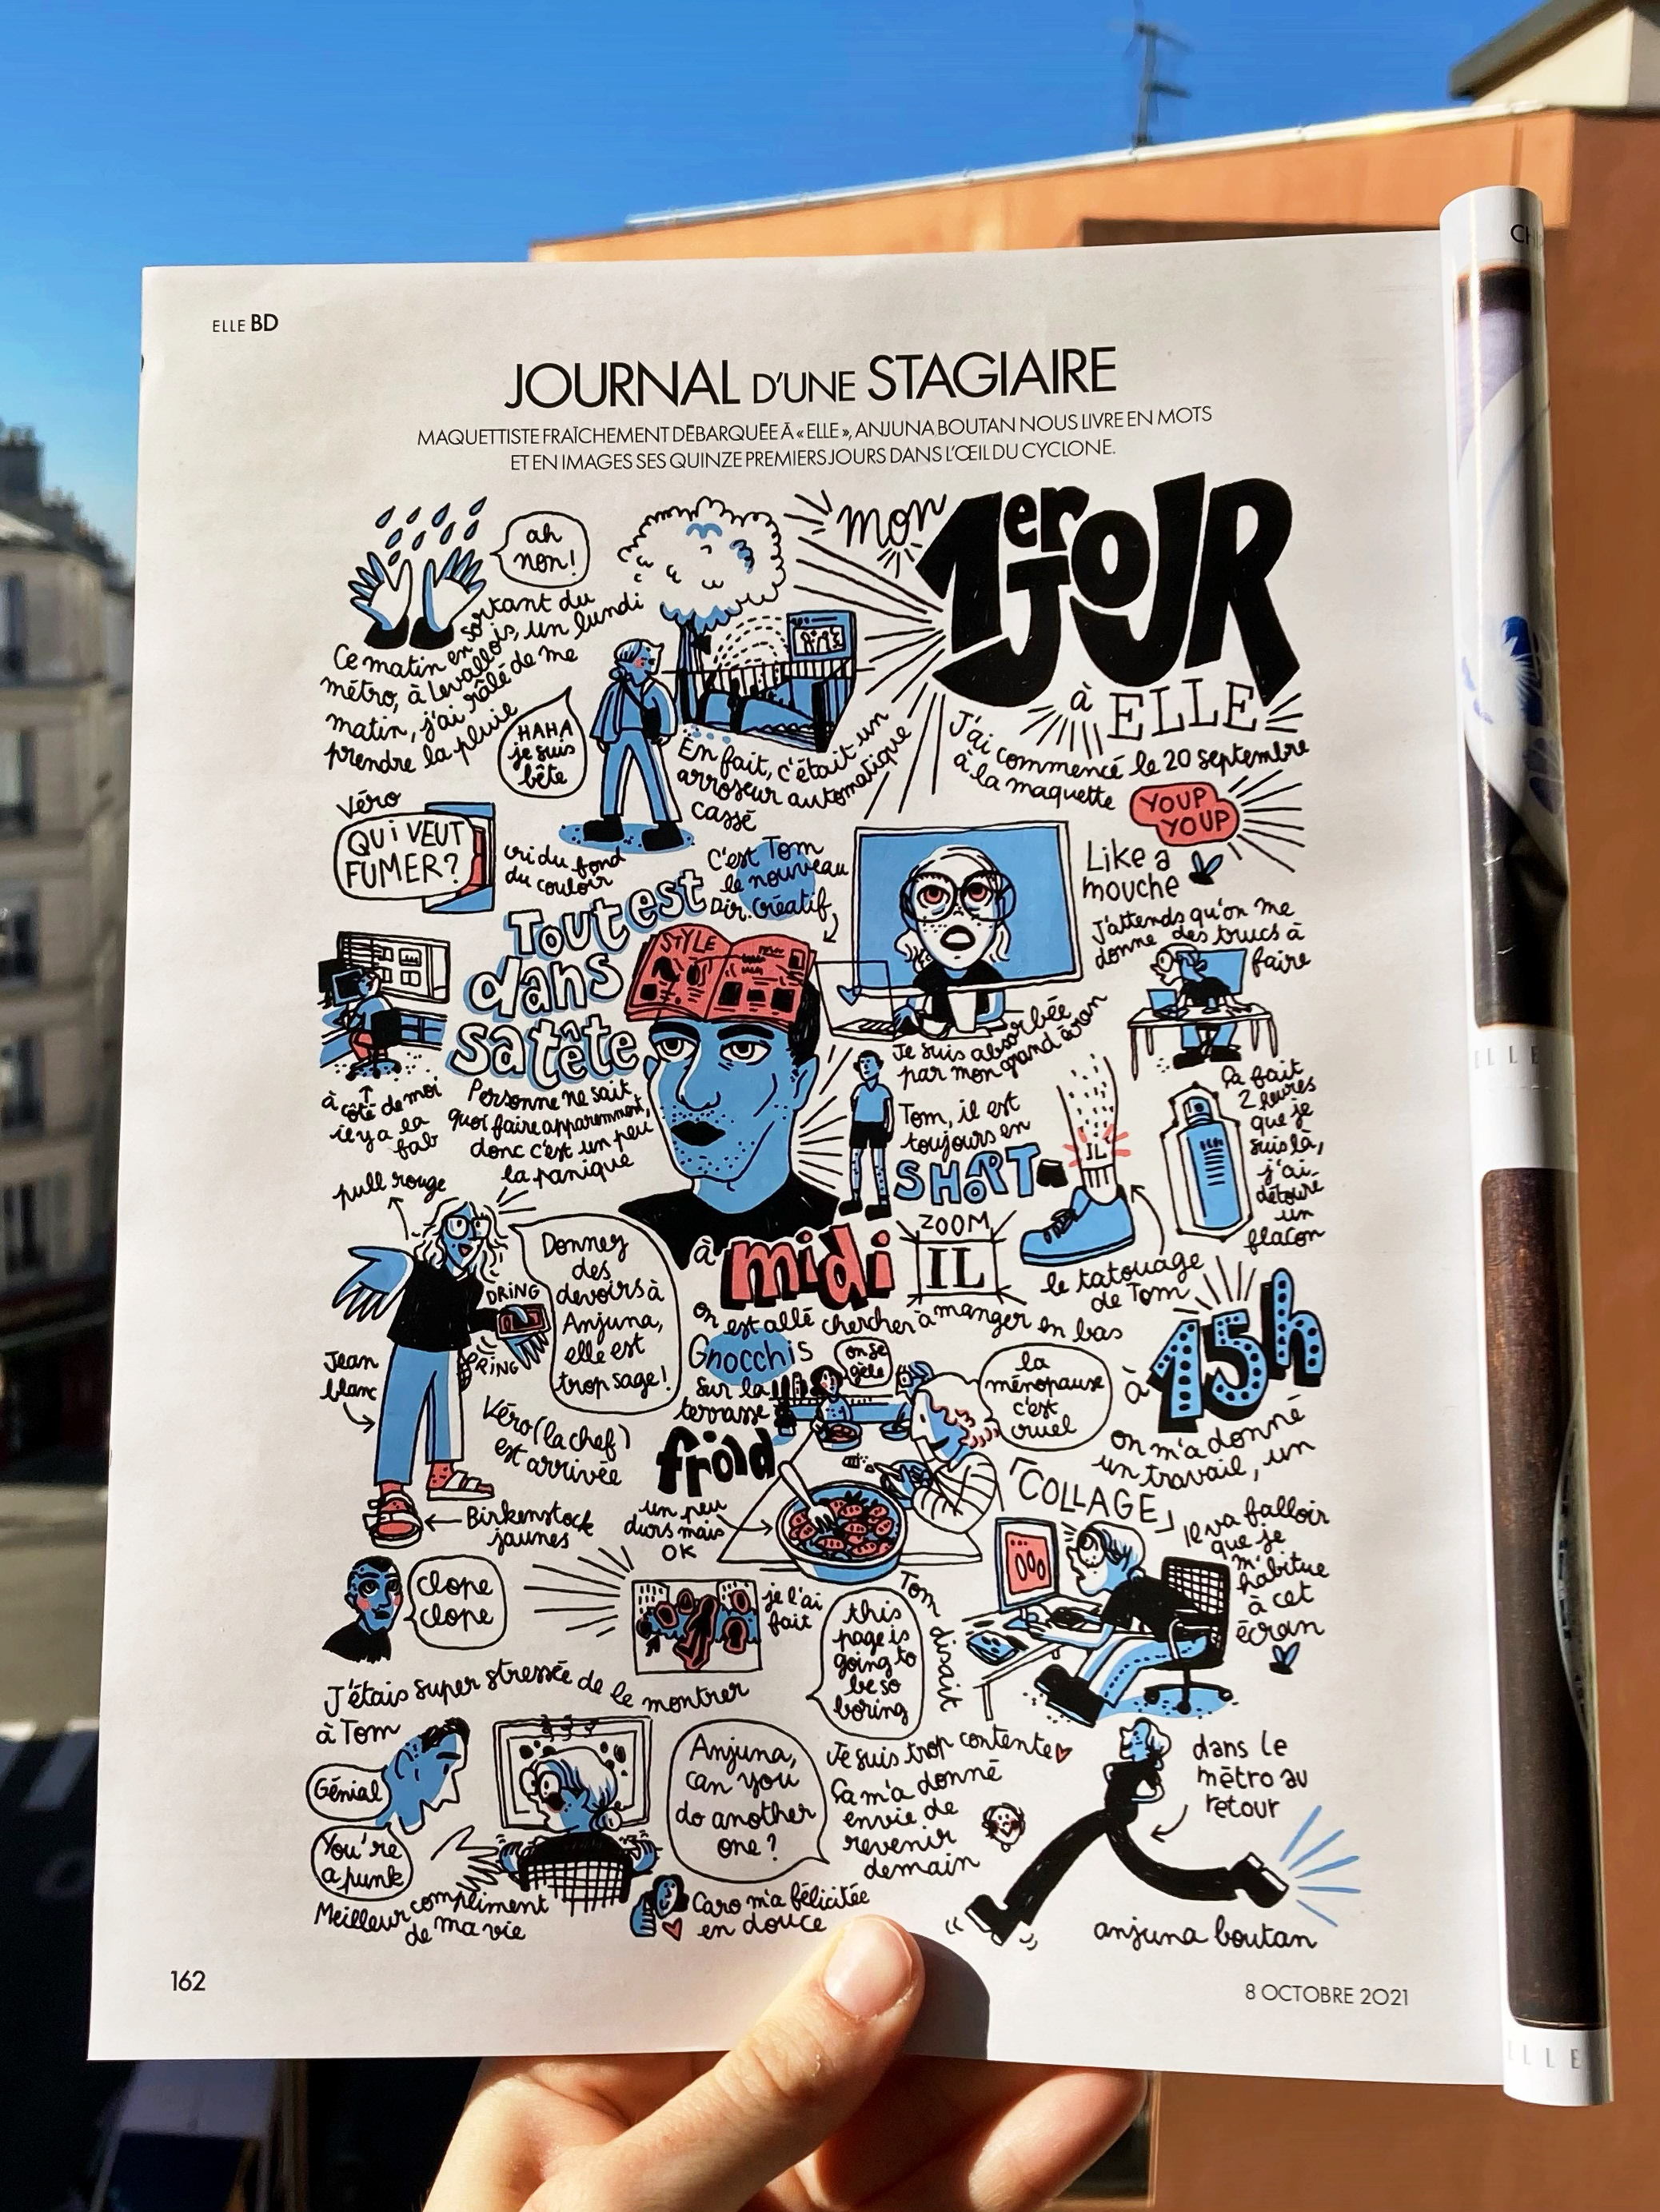 ELLE BD
JOURNAL D'UNE STAGIAIRE
MAQUETTISTE FRAÎCHEMENT DÉBARQUÉE À « ELLE », ANJUNA BOUTAN NOUS LIVRE EN MOTS
ET EN IMAGES SES QUINZE PREMIERS JOURS DANS L'ŒIL DU CYCLONE.
mon
1er
JOUR
à ELLE
J'ai commencé le 20 septembre
à la maquette
YOUP
YOUP
ah
non!
Ce matin en sortant du
métro, à Levallois, un lundi
matin, j'ai râlé de me
prendre la pluie
HAHA
je suis
bête
En fait, c'était un
arroseur automatique
cassé
Véro
QUi VEUT
FUMER?
cri du fond
du couloir
C'est Tom
le nouveau
Dir. Créatif
Tout est
dans
sa tête
STYLE
Like a
mouche
J'attends qu'on me
donne des trucs à
faire
Je suis absorbée
par mon grand écran
à côté de moi
il y a la
fab
Personne ne sait
quoi faire apparemment,
donc c'est un peu
la panique
Tom, il est
toujours en
SHORT
IL
ZOOM
IL
le tatouage
de Tom
Ça fait
2 heures
que je
suis là,
j'ai
détouré
un
flacon
pull rouge
Donnez
des
devoirs à
Anjuna,
elle est
trop sage!
DRING
DRING
Jean
blanc
Véro (la chef)
est arrivée
Birkenstock
jaunes
à midi
on est allé chercher à manger en bas
Gnocchis
sur la
terrasse
froid
on se
gèle
la
ménopause
c'est
cruel
un peu
durs mais
OK
à 15h
on m'a donné
un travail, un
「COLLAGE」
Il va falloir
que je
m'habitue
à cet
écran
clope
clope
je l'ai
fait
Tom disait
this
page is
going to
be so
boring
J'étais super stressée de le montrer
à Tom
Génial
You're
a punk
Meilleur compliment
de ma vie
Anjuna,
can you
do another
one?
Caro m'a félicitée
en douce
Je suis trop contente
Ça m'a donné
envie de
revenir
demain
dans le
métro au
retour
anjuna boutan
162
8 OCTOBRE 2021
ELLE
ELLE